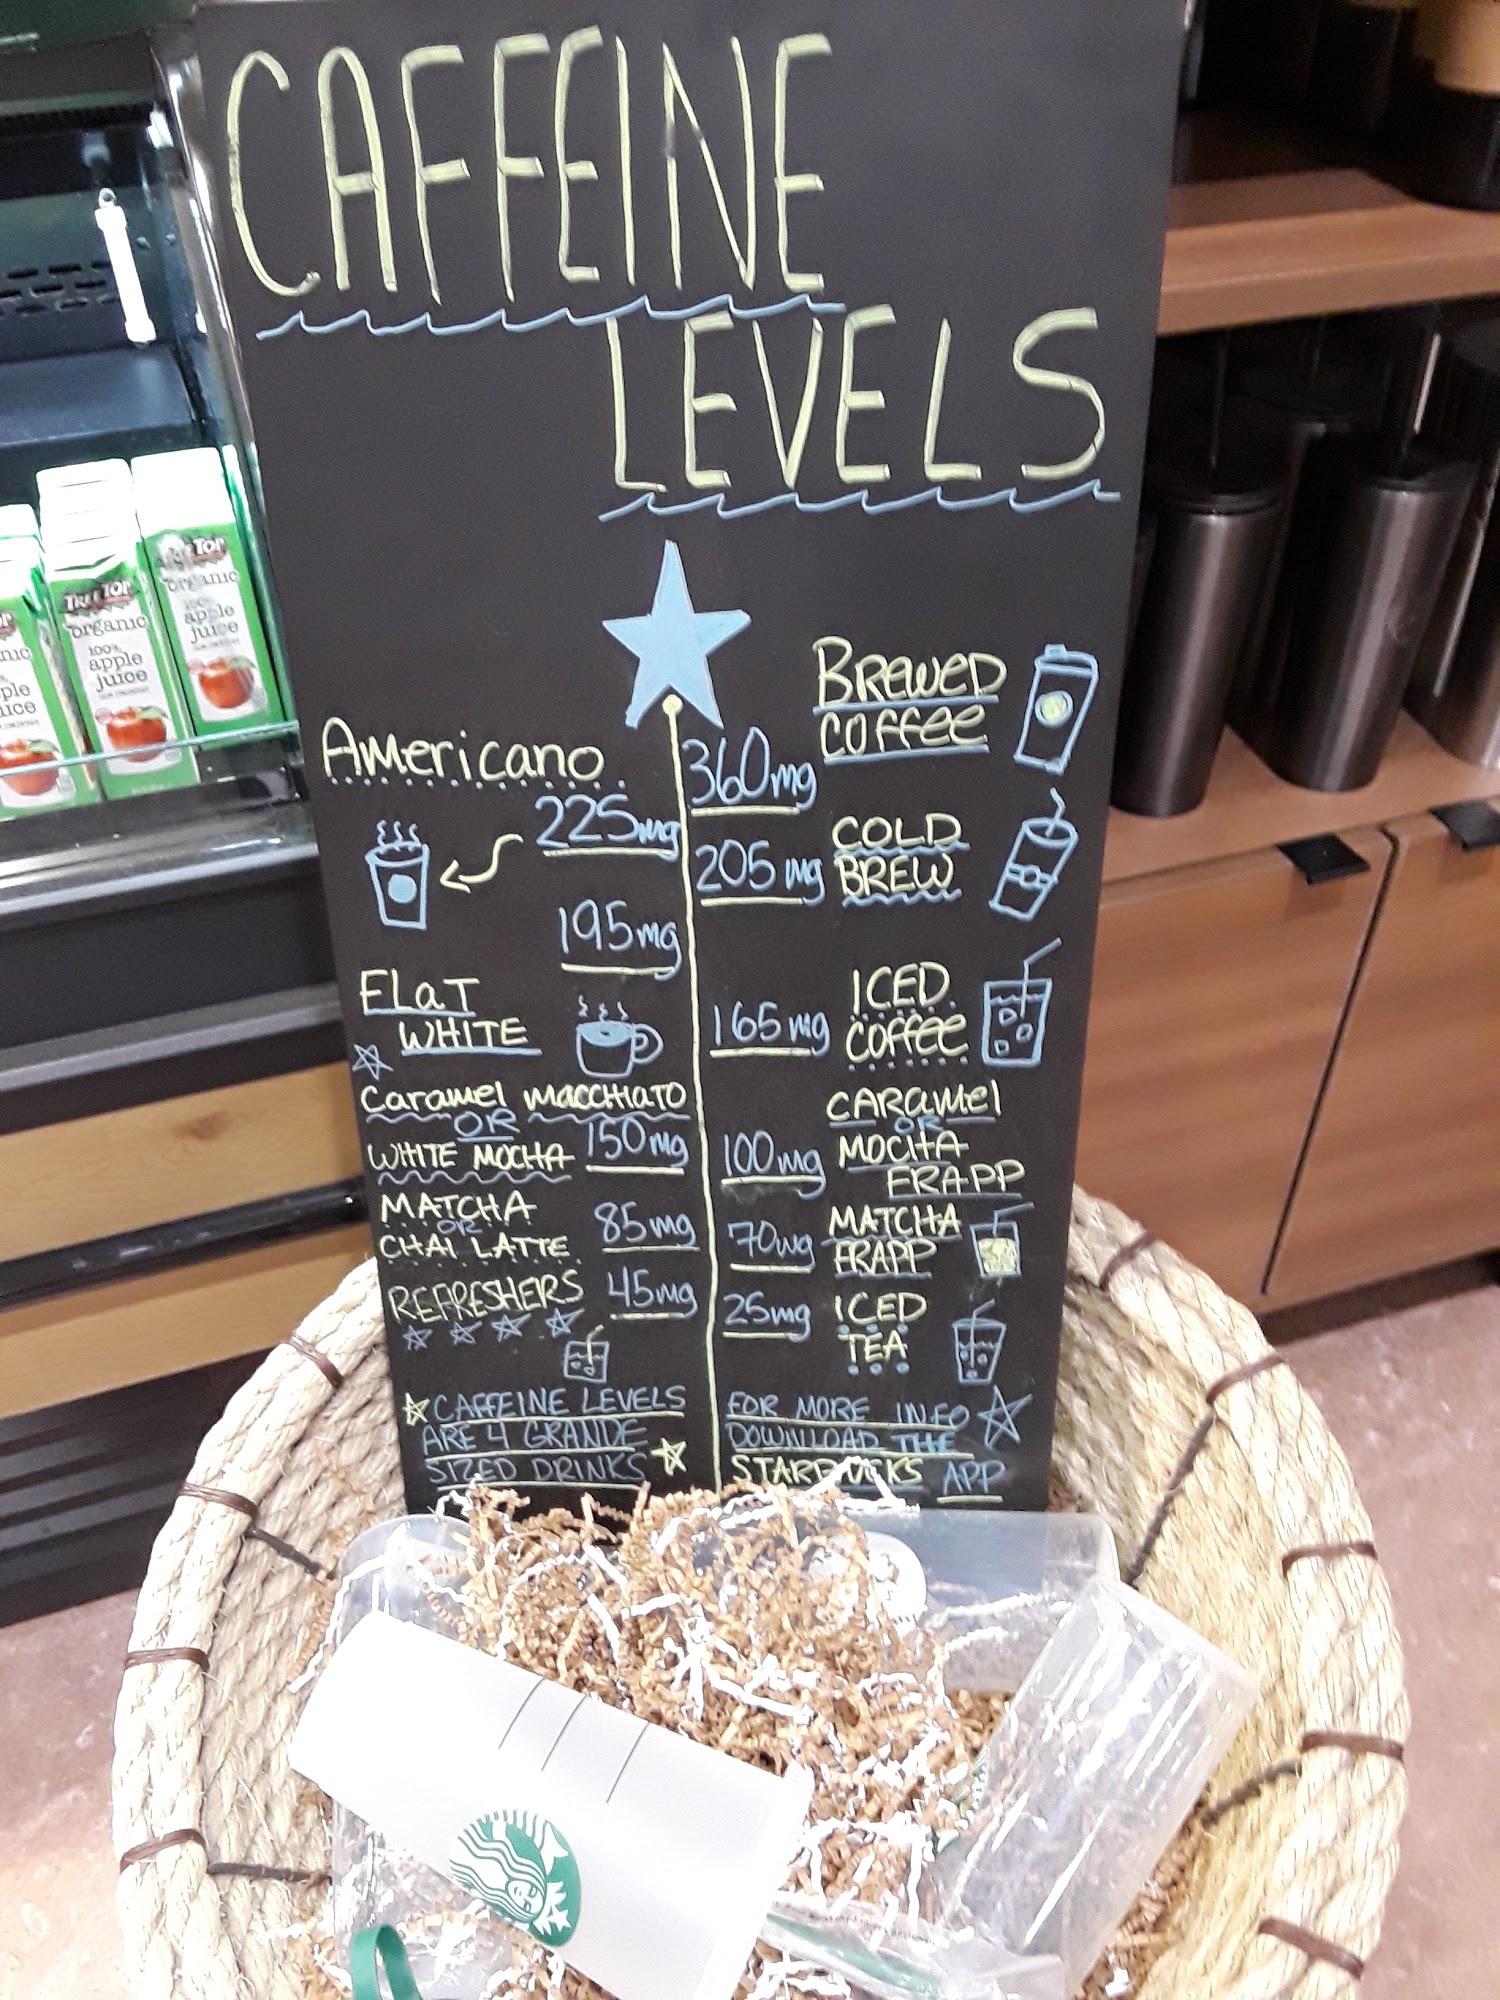 CAFFEINE
LEVELS
Americano
225mg
195mg
FLaT
WHITE
Caramel macchiato
OR
WHITE MOCHA 150mg
MATCHA
OR
CHAI LATTE 85mg
REFRESHERS 45mg
CAFFEINE LEVELS
ARE 4 GRANDE
SIZED DRINKS
BREWED
COFFEE
360mg
COLD
BREW
205mg
ICED
COFFEE
165mg
CARamel
OR
100mg MOCHA
FRAPP
70mg MATCHA
FRAPP
25mg ICED
TEA
FOR MORE INFO
DOWNLOAD THE
STARBUCKS APP
TREE TOP
organic
100%
apple
juice
Tree Top
organic
100%
apple
juice